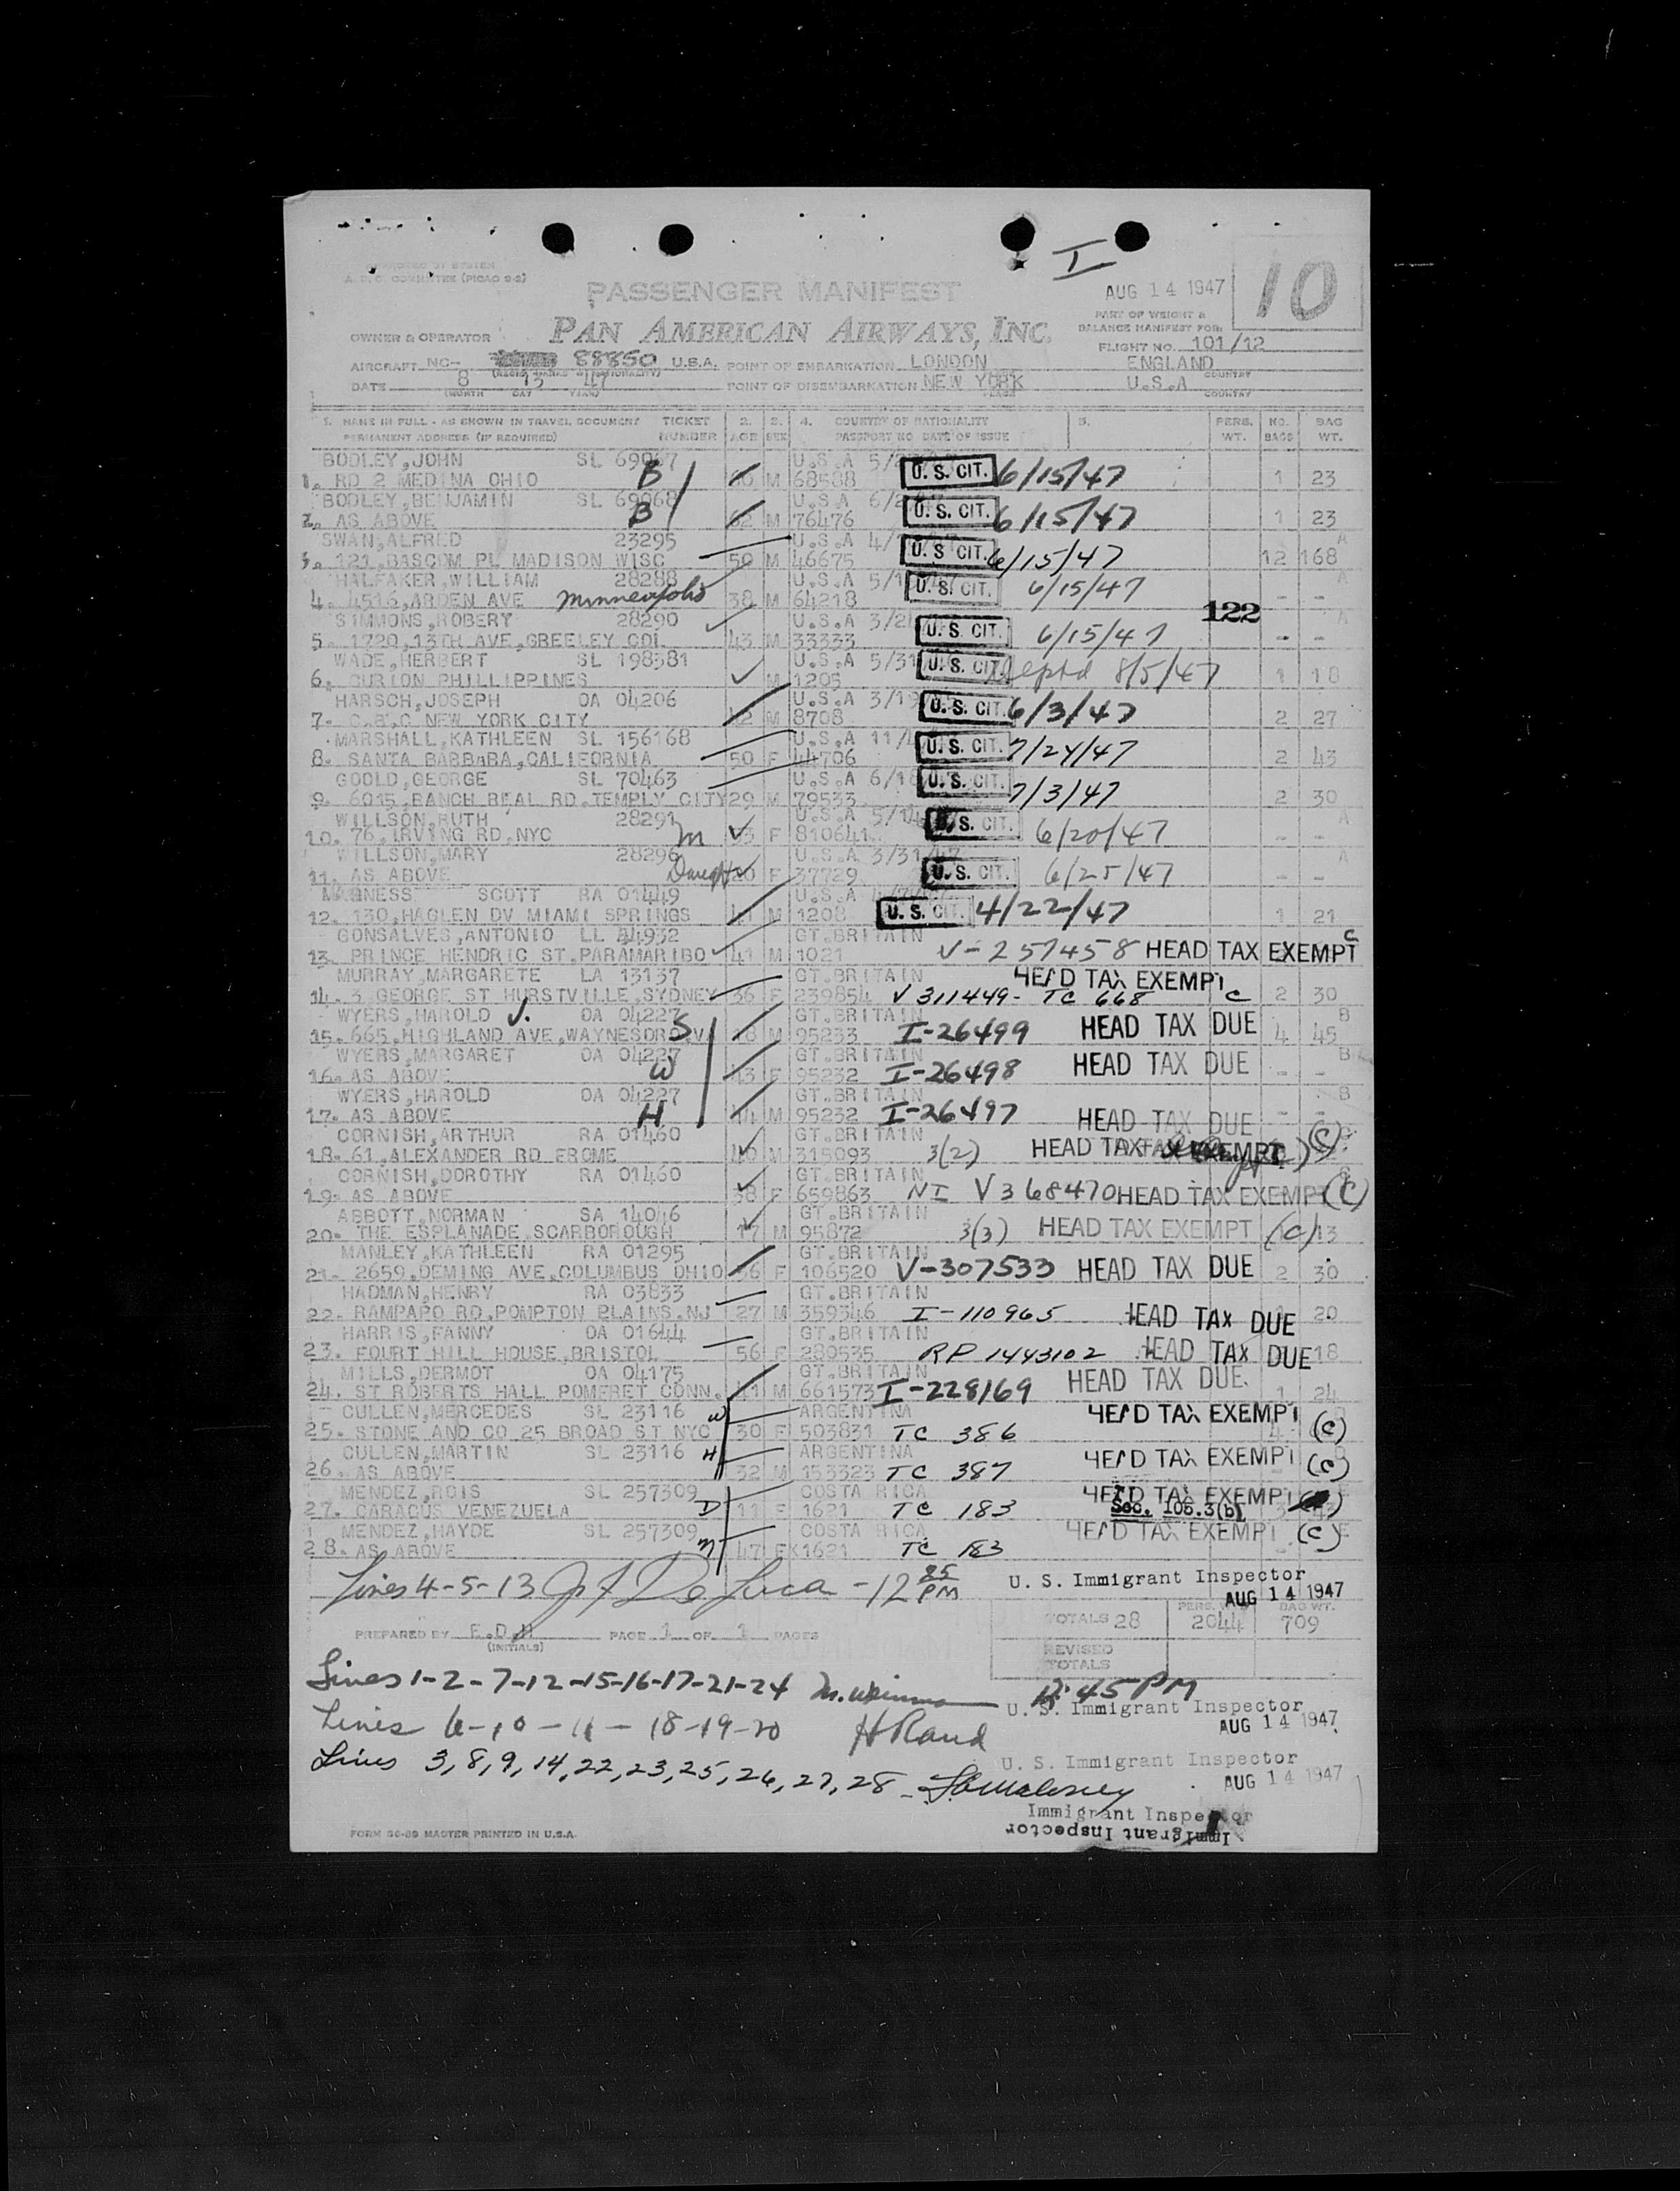 I
A.D.C. COMMITTEE (PICAO 9-2)
PASSENGER MANIFEST
AUG 14 1947
10
OWNER & OPERATOR
PAN AMERICAN AIRWAYS, INC.
PART OF WEIGHT &
BALANCE MANIFEST FOR:
FLIGHT NO. 101/12
AIRCRAFT NC- 88850 U.S.A. POINT OF EMBARKATION LONDON ENGLAND
DATE 8 13 47 POINT OF DISEMBARKATION NEW YORK U.S.A
(MONTH DAY YEAR) COUNTRY
1. NAME IN FULL - AS SHOWN IN TRAVEL DOCUMENT TICKET 2. 3. 4. COUNTRY OF NATIONALITY 5. PERS. NO. BAG
PERMANENT ADDRESS (IF REQUIRED) NUMBER AGE SEX PASSPORT NO DATE OF ISSUE WT. BAGS WT.
BODLEY,JOHN SL 69067 U.S.A 5/
1. RD 2 MEDINA OHIO B M 68508 U.S. CIT. 6/15/47 1 23
BODLEY,BENJAMIN SL 69068 U.S.A 6/2
2. AS ABOVE B 62 M 76476 U.S. CIT. 6/15/47 1 23
SWAN,ALFRED 23295 U.S.A 4/ A
3. 121,BASCOM PL MADISON WISC 50 M 46675 U.S CIT. 6/15/47 12 168
HALFAKER,WILLIAM 28288 U.S.A 5/1 A
4. 4516,ARDEN AVE Minneapolis 38 M 64218 U.S. CIT. 6/15/47 - -
SIMMONS,ROBERY 28290 U.S.A 3/2 122 A
5. 1720,13TH AVE,GREELEY COL 43 M 33333 U.S. CIT. 6/15/47 - -
WADE,HERBERT SL 198581 U.S.A 5/31
6. CURION PHILLIPPINES M 1205 U.S. CIT 8/5/47 1 18
HARSCH,JOSEPH OA 04206 U.S.A 3/19
7. C.B.C NEW YORK CITY 42 M 8708 U.S. CIT. 6/3/47 2 27
MARSHALL,KATHLEEN SL 156168 U.S.A 11/
8. SANTA BARBARA,CALIFORNIA 50 F 44706 U.S. CIT. 7/24/47 2 43
GOOLD,GEORGE SL 70463 U.S.A 6/18
9. 6015,RANCH REAL RD.TEMPLY CITY 29 M 79533 U.S. CIT. 7/3/47 2 30
WILLSON,RUTH 28291 U.S.A 5/14 A
10. 76,IRVING RD,NYC M F 81064 U.S. CIT. 6/20/47 - -
WILLSON,MARY 28296 U.S.A 3/31/47 A
11. AS ABOVE Daught 20 F 37729 U.S. CIT. 6/25/47 - -
SCOTT RA 01449 U.S.A
12. 130,HAGLEN DV MIAMI SPRINGS 41 M 1208 U.S. CIT. 4/22/47 1 21
GONSALVES,ANTONIO LL 44932 GT.BRITAIN C
13. PRINCE HENDRIC ST.PARAMARIBO 41 M 1021 V-257458 HEAD TAX EXEMPT
MURRAY,MARGARETE LA 13137 GT.BRITAIN HEAD TAX EXEMPT
14. 3 GEORGE ST HURSTVILLE,SYDNEY 36 F 239854 V 311449- TC 668 C 2 30
WYERS,HAROLD J. OA 04227 GT.BRITAIN B
15. 665,HIGHLAND AVE,WAYNESBRO,V S 18 M 95233 I-26499 HEAD TAX DUE 4 45
WYERS,MARGARET OA 04227 GT.BRITAIN B
16. AS ABOVE W 43 F 95232 I-26498 HEAD TAX DUE - -
WYERS,HAROLD OA 04227 GT.BRITAIN B
17. AS ABOVE H 44 M 95232 I-26497 HEAD TAX DUE - -
CORNISH,ARTHUR RA 01460 GT.BRITAIN
18. 61,ALEXANDER RD FROME 40 M 315093 3(2) HEAD TAX EXEMPT (C)
CORNISH,DOROTHY RA 01460 GT.BRITAIN
19. AS ABOVE 38 F 659863 NI V368470 HEAD TAX EXEMPT (C)
ABBOTT,NORMAN SA 14046 GT.BRITAIN
20. THE ESPLANADE SCARBOROUGH 17 M 95872 3(3) HEAD TAX EXEMPT (C) 13
MANLEY,KATHLEEN RA 01295 GT.BRITAIN
21. 2659,DEMING AVE,COLUMBUS OHIO 56 F 106520 V-307533 HEAD TAX DUE 2 30
HADMAN,HENRY RA 03833 GT.BRITAIN
22. RAMPAPO RD,POMPTON PLAINS.NJ 27 M 359346 I-110965 HEAD TAX DUE 20
HARRIS,FANNY OA 01644 GT.BRITAIN
23. FOURT HILL HOUSE,BRISTOL 56 F 280535 RP 1443102 HEAD TAX DUE 18
MILLS,DERMOT OA 04175 GT.BRITAIN
24. ST ROBERTS HALL POMFRET CONN. 41 M 661573 I-228169 HEAD TAX DUE 1 24
CULLEN,MERCEDES SL 23116 W ARGENTINA HEAD TAX EXEMPT
25. STONE AND CO 25 BROAD ST NYC 30 F 503831 TC 386 (C)
CULLEN,MARTIN SL 23116 H ARGENTINA HEAD TAX EXEMPT
26. AS ABOVE 32 M 153323 TC 387 (C)
MENDEZ,ROIS SL 257309 COSTA RICA HEAD TAX EXEMPT
27. CARACUS VENEZUELA D 11 F 1621 TC 183 Sec. 105.3(b)
MENDEZ,HAYDE SL 257309 COSTA RICA HEAD TAX EXEMPT (C) E
28. AS ABOVE M 47 F 1621 TC 183
Lines 4-5-13 De Luca - 12 25 PM U. S. Immigrant Inspector
AUG 14 1947
TOTALS 28 2044 709
PREPARED BY E.D.H PAGE 1 OF 1 PAGES
(INITIALS)
REVISED
TOTALS
Lines 1-2-7-12-15-16-17-21-24 12:45 PM
U. S. Immigrant Inspector
AUG 14 1947
Lines 6-10-11-18-19-20 H Rand
U. S. Immigrant Inspector
AUG 14 1947
Lines 3,8,9,14,22,23,25,26,27,28 -
Immigrant Inspector
Immigrant Inspector
FORM 90-89 MASTER PRINTED IN U.S.A.